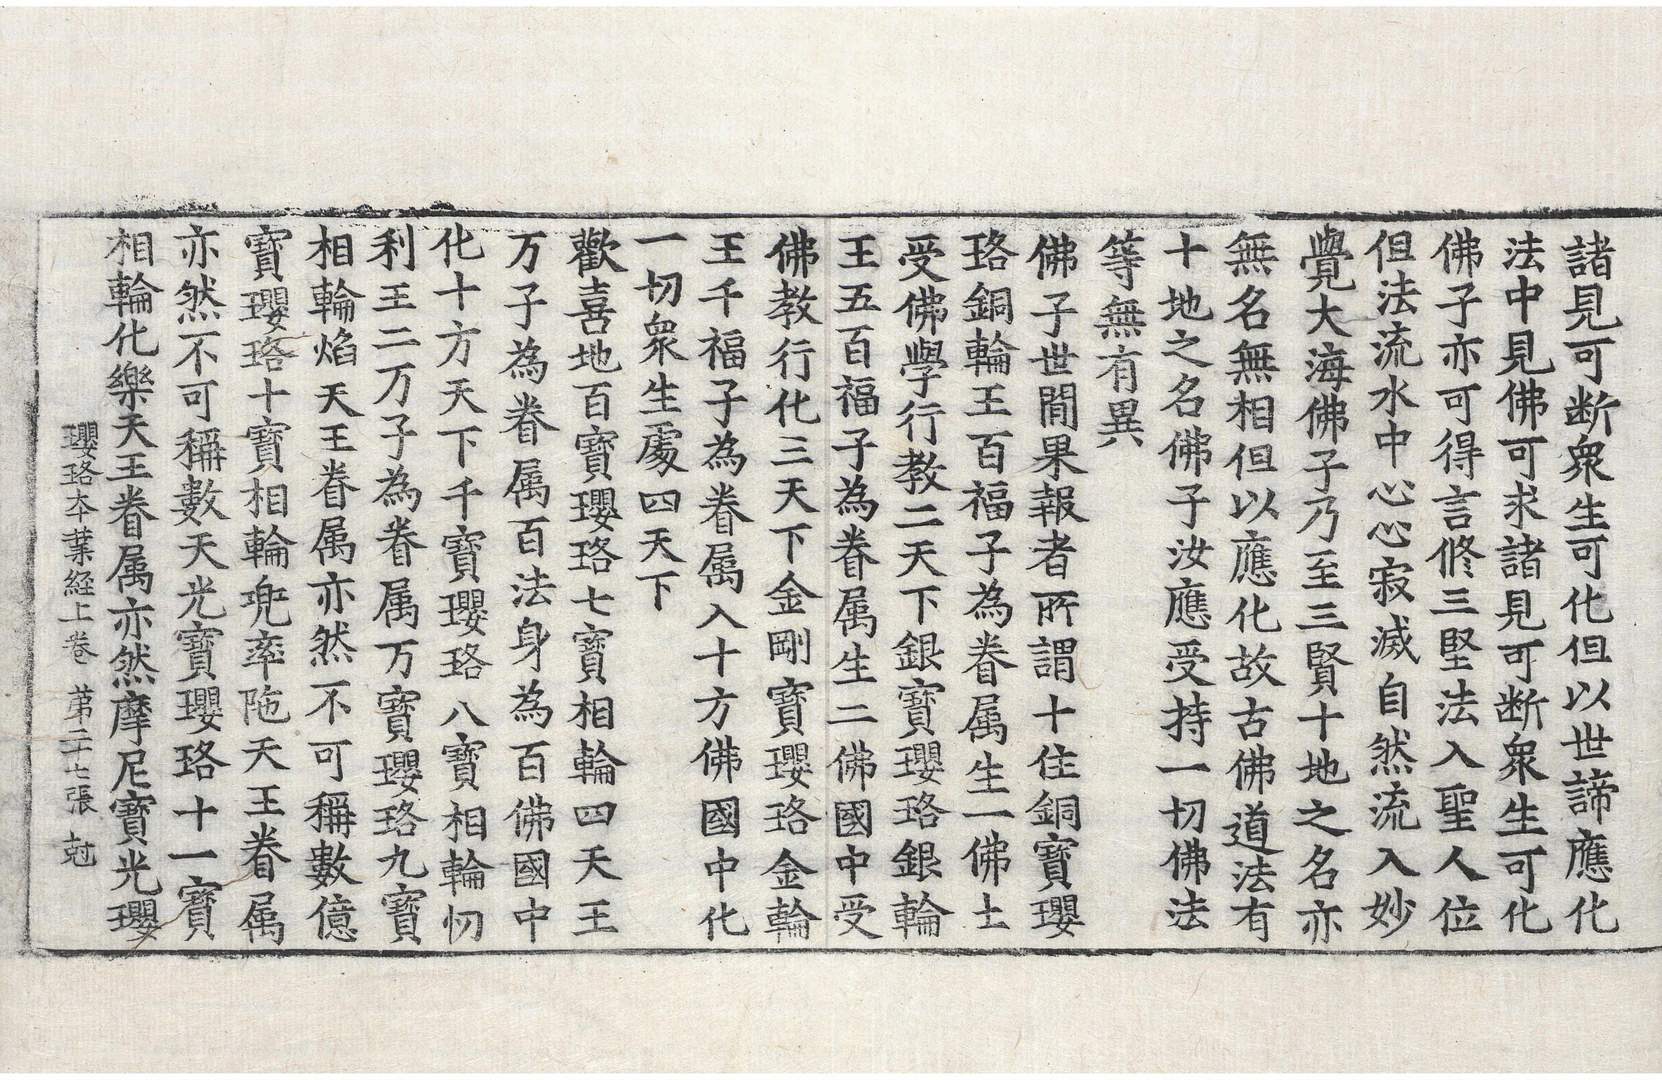 諸見可断衆生可化但以世諦應化
法中見佛可求諸見可断衆生可化
佛子亦可得言俢三堅法入聖人位
但法流水中心心寂滅自然流入妙
覺大海佛子乃至三賢十地之名亦
無名無相但以應化故古佛道法有
十地之名佛子汝應受持一切佛法
等無有異
佛子世間果報者所謂十住銅寶瓔
珞銅輪王百福子為眷属生一佛土
受佛學行教二天下銀寶瓔珞銀輪
王五百福子為眷属生二佛國中受
佛教行化三天下金剛寶瓔珞金輪
王千福子為眷属入十方佛國中化
一切衆生處四天下
歡喜地百寶瓔珞七寶相輪四天王
万子為眷属百法身為百佛國中
化十方天下千寶瓔珞八寶相輪忉
利王二万子為眷属万寶瓔珞九寶
相輪焰天王眷属亦然不可稱數億
寶瓔珞十寶相輪兜率陁天王眷属
亦然不可稱數天光寶瓔珞十一寶
相輪化樂天王眷属亦然摩尼寶光瓔
瓔珞本業經上卷 苐二十七張 尅